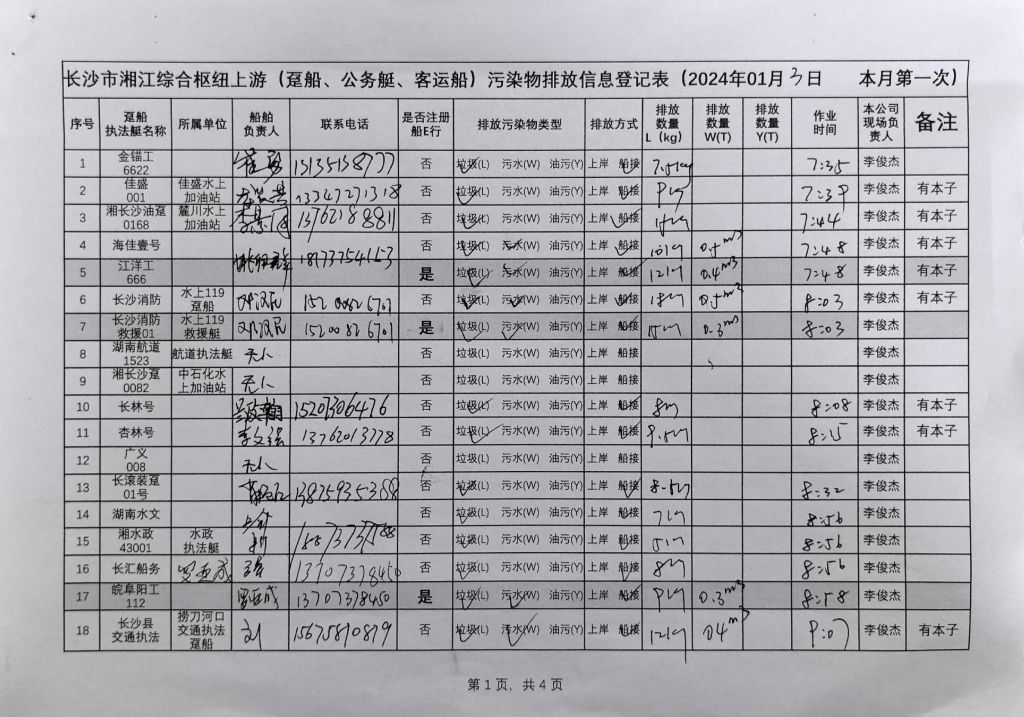 长沙市湘江综合枢纽上游（趸船、公务艇、客运船）污染物排放信息登记表（2024年01月3日 本月第一次）
序号 趸船执法艇名称 所属单位 船舶负责人 联系电话 是否注册船E行 排放污染物类型 排放方式 排放数量L（kg） 排放数量W(T) 排放数量Y(T) 作业时间 本公司现场负责人 备注
1 金锚工6622 否 垃圾(L) 污水(W) 油污(Y) 上岸 船接 7:35 李俊杰
2 佳盛001 佳盛水上加油站 否 垃圾(L) 污水(W) 油污(Y) 上岸 船接 7:39 李俊杰 有本子
3 湘长沙油趸0168 麓川水上加油站 否 垃圾(L) 污水(W) 油污(Y) 上岸 船接 7:44 李俊杰 有本子
4 海佳壹号 18173754153 否 垃圾(L) 污水(W) 油污(Y) 上岸 船接 7:48 李俊杰 有本子
5 江洋工666 是 垃圾(L) 污水(W) 油污(Y) 上岸 船接 12kg 0.4m3 7:48 李俊杰
6 长沙消防 水上119趸船 邓汉民 15200826701 否 垃圾(L) 污水(W) 油污(Y) 上岸 船接 0.5m3 8:03 李俊杰 有本子
7 长沙消防救援01 水上119救援艇 邓汉民 15200826701 是 垃圾(L) 污水(W) 油污(Y) 上岸 船接 0.3m3 8:03 李俊杰
8 湖南航道1523 航道执法艇 无人 否 垃圾(L) 污水(W) 油污(Y) 上岸 船接 李俊杰
9 湘长沙趸0082 中石化水上加油站 无人 否 垃圾(L) 污水(W) 油污(Y) 上岸 船接 李俊杰
10 长林号 15207306476 否 垃圾(L) 污水(W) 油污(Y) 上岸 船接 8:08 李俊杰 有本子
11 杏林号 李文强 13762013778 否 垃圾(L) 污水(W) 油污(Y) 上岸 船接 8:15 李俊杰 有本子
12 广义008 无人 否 垃圾(L) 污水(W) 油污(Y) 上岸 船接 李俊杰
13 长滚装趸01号 13875935388 否 垃圾(L) 污水(W) 油污(Y) 上岸 船接 8.5kg 8:32 李俊杰
14 湖南水文 否 垃圾(L) 污水(W) 油污(Y) 上岸 船接 7kg 8:56 李俊杰
15 湘水政43001 水政执法艇 否 垃圾(L) 污水(W) 油污(Y) 上岸 船接 5kg 8:56 李俊杰
16 长汇船务 罗亚成 13707378450 否 垃圾(L) 污水(W) 油污(Y) 上岸 船接 8kg 8:56 李俊杰
17 皖阜阳工112 罗亚成 13707378450 是 垃圾(L) 污水(W) 油污(Y) 上岸 船接 9kg 0.3m3 8:58 李俊杰
18 长沙县交通执法 捞刀河口交通执法趸船 刘 15675810879 否 垃圾(L) 污水(W) 油污(Y) 上岸 船接 12kg 0.4m3 9:07 李俊杰 有本子
第 1 页，共 4 页